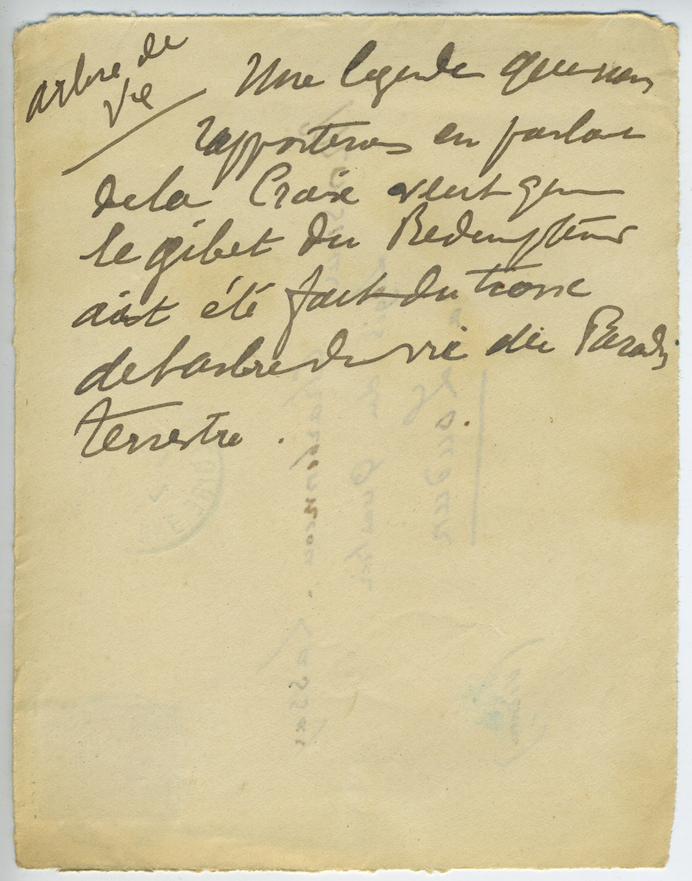 arbre de
vie
Une legende que nous
rapporterons en parlant
de la Croix veut que
le gibet du Redempteur
ait été fait du tronc
de l'arbre de vie du Paradis
terrestre.